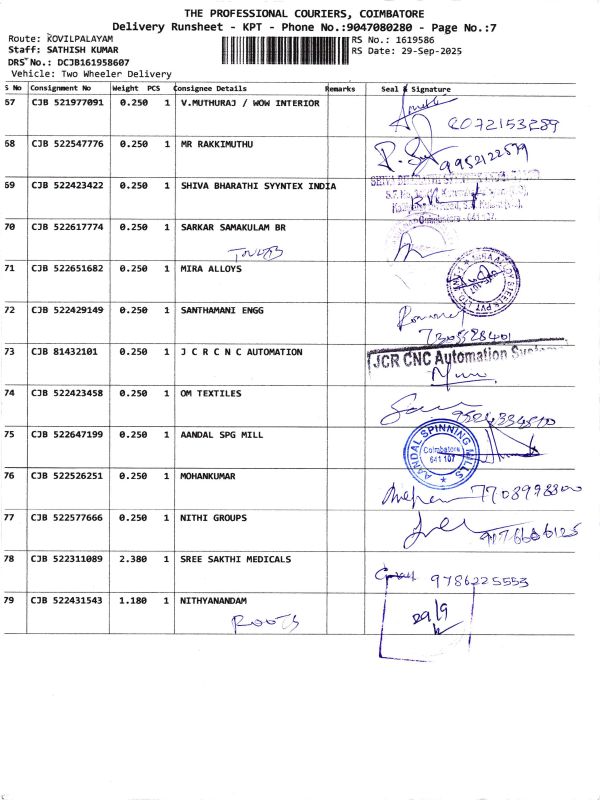 THE PROFESSIONAL COURIERS, COIMBATORE
Delivery Runsheet - KPT - Phone No.:9047080280 - Page No.:7
Route: KOVILPALAYAM RS No.: 1619586
Staff: SATHISH KUMAR RS Date: 29-Sep-2025
DRS No.: DCJB161958607
Vehicle: Two Wheeler Delivery
S No Consignment No Weight PCS Consignee Details Remarks Seal & Signature
67 CJB 521977091 0.250 1 V.MUTHURAJ / WOW INTERIOR
8072153289
68 CJB 522547776 0.250 1 MR RAKKIMUTHU
9952122579
69 CJB 522423422 0.250 1 SHIVA BHARATHI SYYNTEX INDIA
70 CJB 522617774 0.250 1 SARKAR SAMAKULAM BR
71 CJB 522651682 0.250 1 MIRA ALLOYS
72 CJB 522429149 0.250 1 SANTHAMANI ENGG
73 CJB 81432101 0.250 1 J C R C N C AUTOMATION
JCR CNC Automation Systems
74 CJB 522423458 0.250 1 OM TEXTILES
75 CJB 522647199 0.250 1 AANDAL SPG MILL
AANDAL SPINNING MILLS
Coimbatore
641 107
76 CJB 522526251 0.250 1 MOHANKUMAR
77 CJB 522577666 0.250 1 NITHI GROUPS
78 CJB 522311089 2.380 1 SREE SAKTHI MEDICALS
9786225553
79 CJB 522431543 1.180 1 NITHYANANDAM
ROOTS
29/9